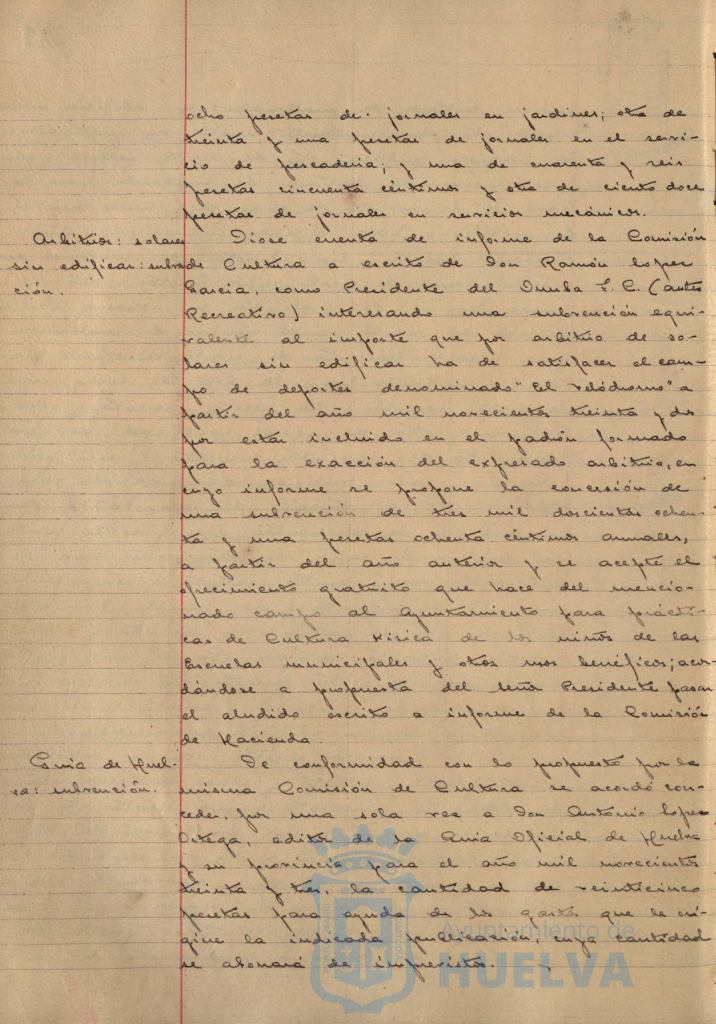 ocho pesetas de jornales en jardines; otra de
treinta y una pesetas de jornales en el servi-
cio de pescadería; y una de cuarenta y seis
pesetas cincuenta céntimos y otra de ciento doce
pesetas de jornales en servicios mecánicos.
Arbitrios: solares
sin edificar: subven-
ción.
Diose cuenta de informe de la Comisión
de Cultura a escrito de Don Ramón López
García, como Presidente del Onuba F. C. (antes
Recreativo) interesando una subvención equi-
valente al importe que por arbitrio de so-
lares sin edificar ha de satisfacer el cam-
po de deportes denominado "El Velódromo" a
partir del año mil novecientos treinta y dos
por estar incluido en el padrón formado
para la exacción del expresado arbitrio, en
cuyo informe se propone la concesión de
una subvención de tres mil doscientas ochen-
ta y una pesetas ochenta céntimos anuales,
a partir del año anterior y se acepte el
ofrecimiento gratuito que hace del mencio-
nado campo al Ayuntamiento para prácti-
cas de Cultura Física de los niños de las
Escuelas municipales y otros usos benéficos; acor-
dándose a propuesta del señor Presidente pasar
el aludido escrito a informe de la Comisión
de Hacienda.
Guía de Huel-
va: subvención.
De conformidad con lo propuesto por la
misma Comisión de Cultura se acordó con-
ceder, por una sola vez a Don Antonio López
Ortega, editor de la Guía Oficial de Huelva
y su provincia para el año mil novecientos
treinta y tres, la cantidad de veinticinco
pesetas para ayuda de los gastos que le ori-
gine la indicada publicación, cuya cantidad
se abonará de imprevistos.
Ayuntamiento de
HUELVA